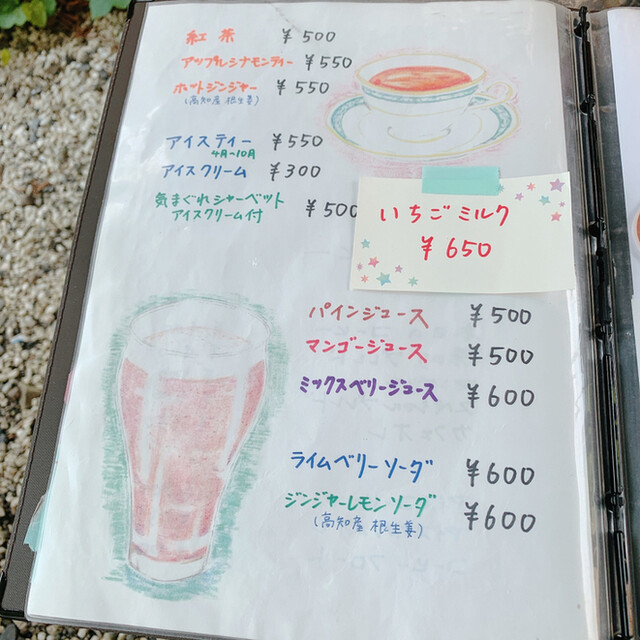 紅茶 ¥500
アップルシナモンティー ¥550
ホットジンジャー ¥550
(高知産 根生姜)
アイスティー ¥550
4月~10月
アイスクリーム ¥300
気まぐれシャーベット
アイスクリーム付 ¥500
いちごミルク
¥650
パインジュース ¥500
マンゴージュース ¥500
ミックスベリージュース ¥600
ライムベリーソーダ ¥600
ジンジャーレモンソーダ ¥600
(高知産 根生姜)